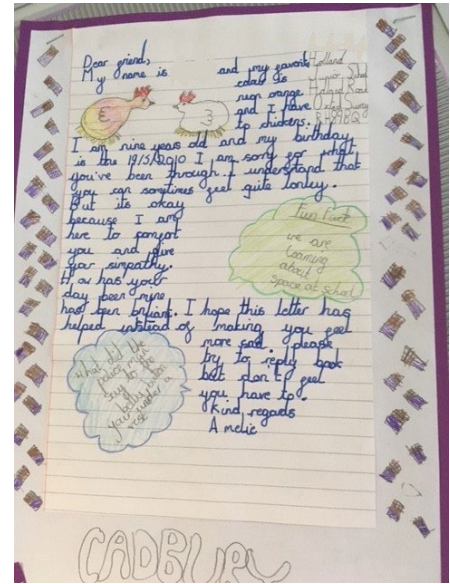 Dear friend,
My name is and my favorite
colour is
neon orange
and I have
to chickens.
Holland
Junior School
Holland Road
Oxted Surrey
RH8 9BQ
I am nine years old and my birthday
is the 19/5/2010 I am sorry for what
you've been through. I understand that
you can sometimes feel quite lonley.
But its okay
because I am
here to comfort
you and give
your simpathy.
How has your
day been myne
has been briliant. I hope this letter has
helped instead of making you feel
more sad. please
try to reply back
but don't feel
you have to.
Kind regards
Amelie
Fun Fact
we are
learning
about
space at school
what did the
policeman
say to the
belly button
your under a
vest
CADBURY